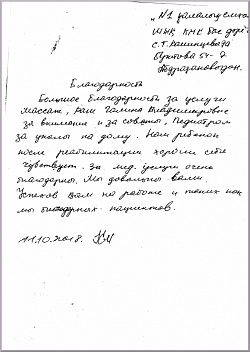 „N1
ШЖҚ КМК бас дәрі
С.Т.
54-2
Благодарность
Большое благодарность за услуги
массаж, вам Галина Владимировне
за внимание и за советы, Педиатром
за уколы на дому. Наш ребенок
после реабилитации хорошо себе
чувствует. За мед. услуги очень
благодарны. Мы довольны вами.
Успехов Вам на работе и таких как
мы благодарных пациентов.
11.10.2018.